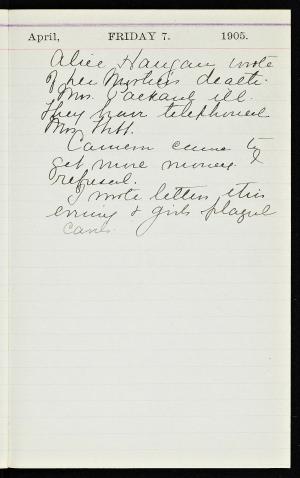 April, FRIDAY 7. 1905.
Alice Haugan wrote
of her Mother's death.
Mrs. Packard ill.
They have telephoned
Mrs.
Cameron came to
get more money. I
refused.
I wrote letters this
evening & girls played
cards.